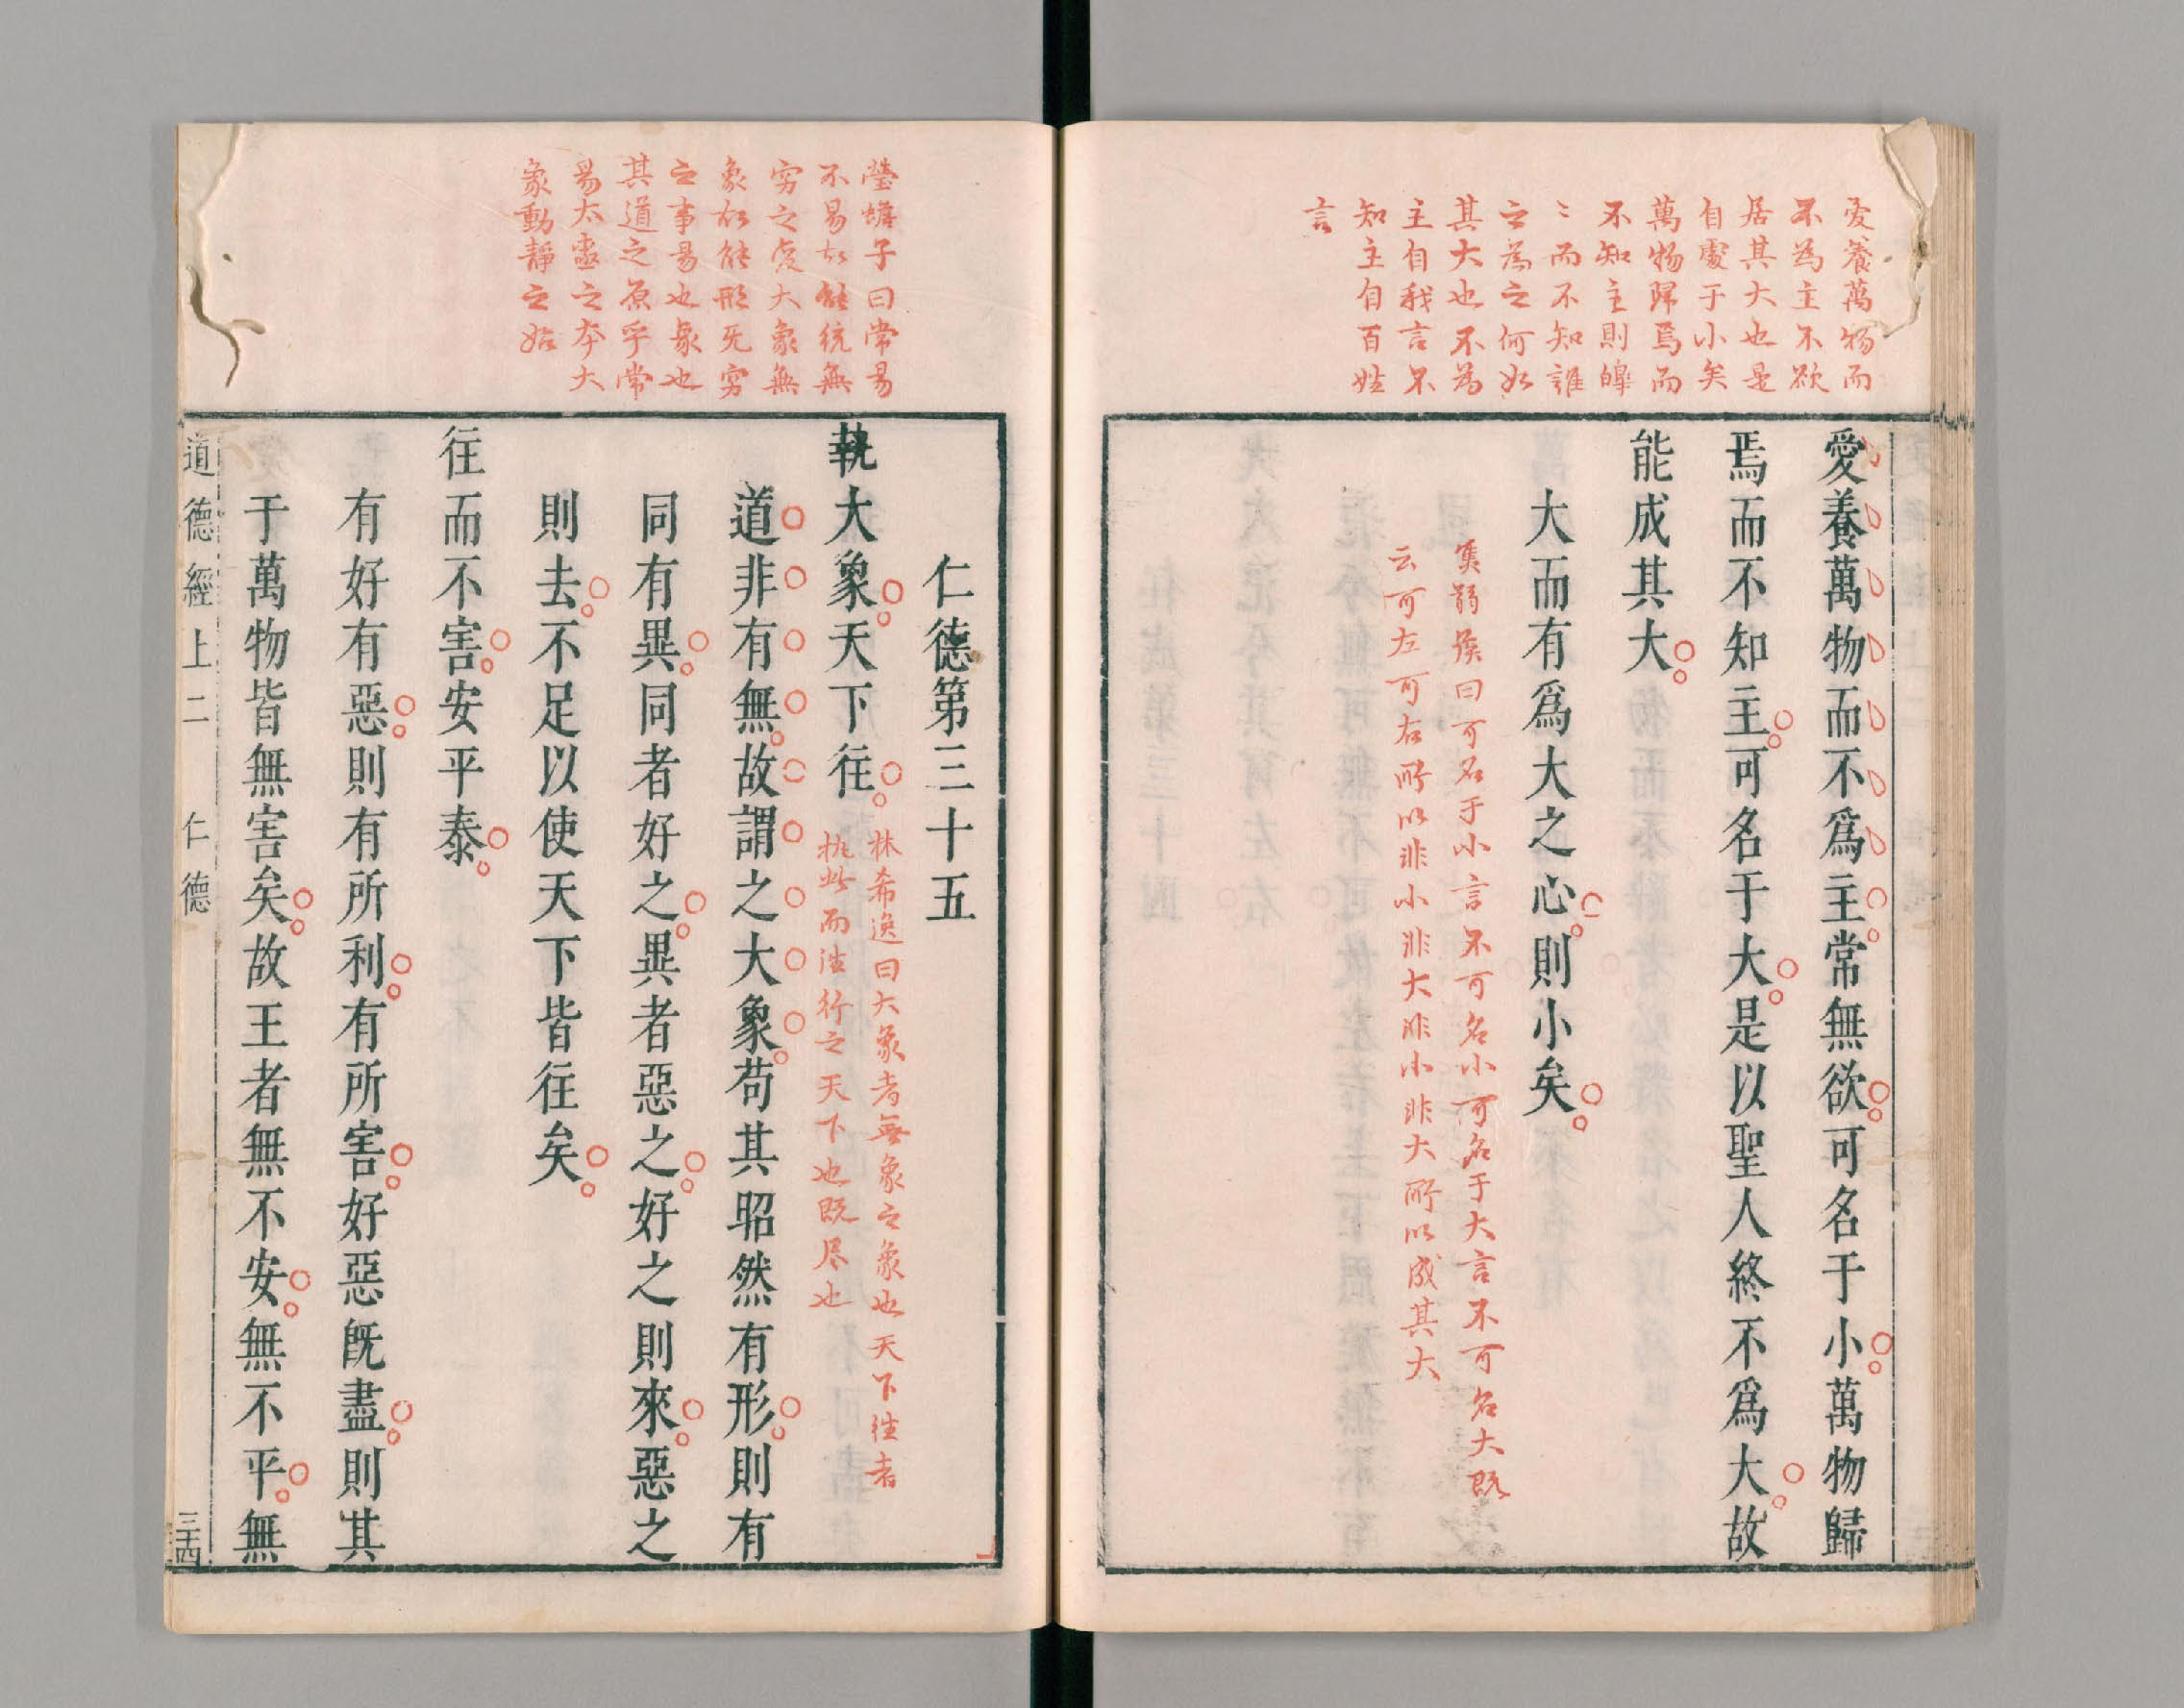 愛養萬物而
不為主不欲
居其大也是
自處于小矣
萬物歸焉而
不知主則皞
〻而不知誰
之為之何如
其大也不為
主自我言不
知主自百姓
言
愛養萬物而不爲主常無欲可名于小萬物歸
焉而不知主可名于大是以聖人終不爲大故
能成其大
大而有爲大之心則小矣
焦弱侯曰可名于小言不可名小可名于大言不可名大既
云可左可右所以非小非大非小非大所以成其大
瑩蟾子曰常易
不易故能統無
穷之變大象無
象故能形无穷
之事易也象也
其道之原乎常
易太虛之本大
象動靜之始
仁德第三十五
執大象天下往
林希逸曰大象者無象之象也天下往者
执此而往行之天下也既尽也
道非有無故謂之大象苟其昭然有形則有
同有異同者好之異者惡之好之則來惡之
則去不足以使天下皆往矣
往而不害安平泰
有好有惡則有所利有所害好惡旣盡則其
于萬物皆無害矣故王者無不安無不平無
道德經上二 仁德 三十四